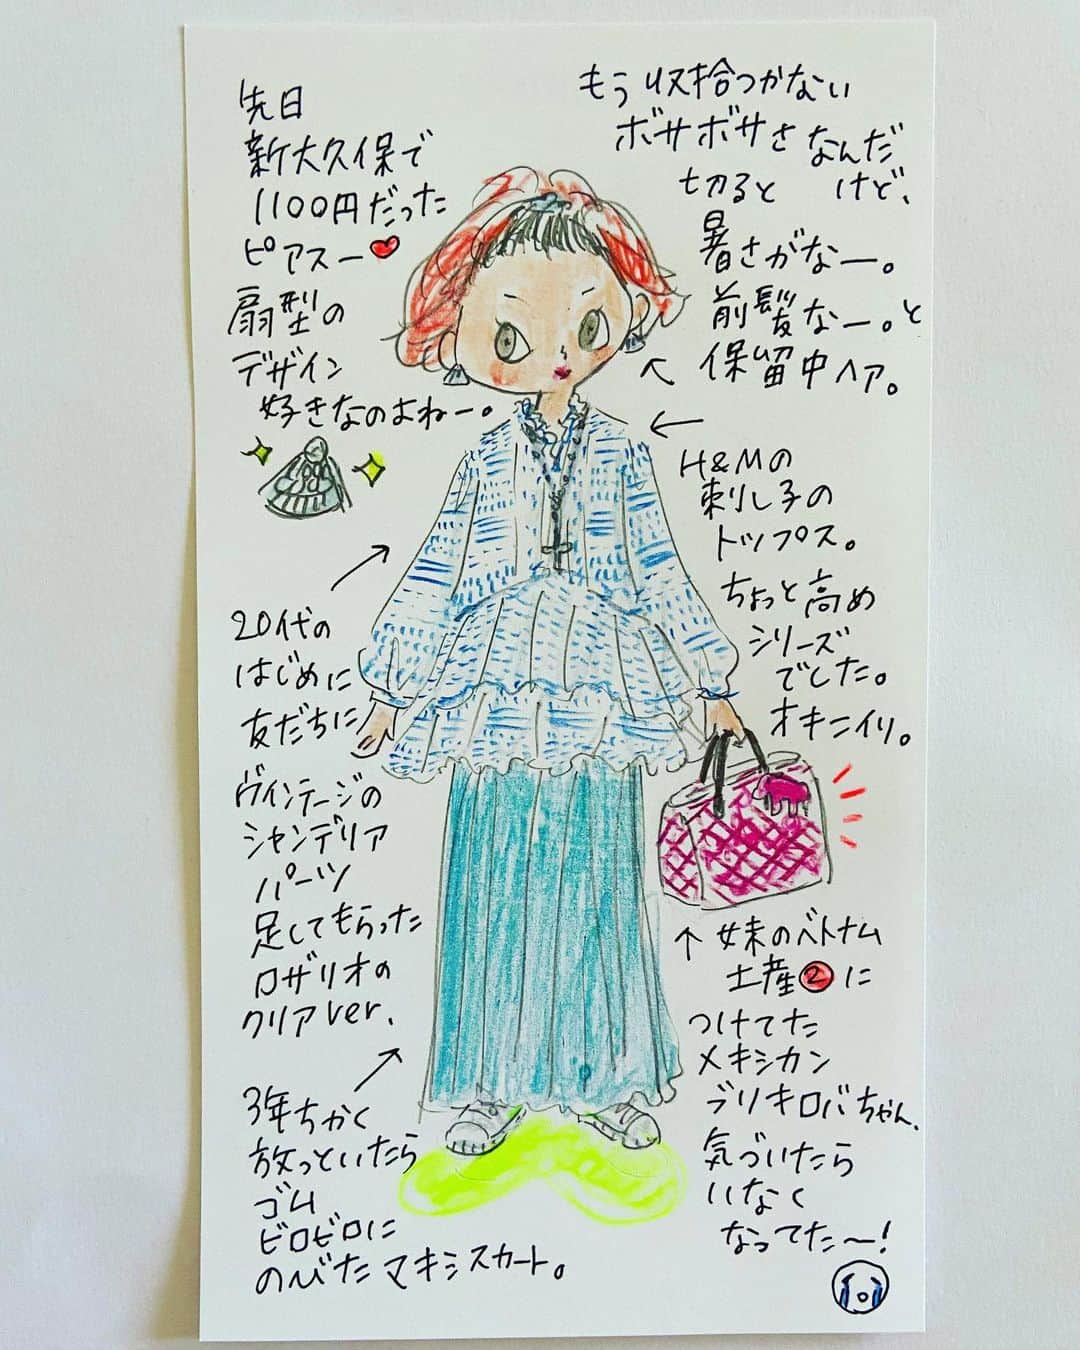 先日
新大久保で
1100円だった
ピアスー
扇型の
デザイン
好きなのよねー。
もう収拾つかない
ボサボサさなんだ
けど、
切ると
暑さがなー。
前髪なー。と
保留中ヘア。
H&Mの
刺し子の
トップス。
ちょっと高め
シリーズ
でした。
オキニイリ。
20代の
はじめに
友だちに
ヴィンテージの
シャンデリア
パーツ
足してもらった
ロザリオの
クリアver.
↑妹のベトナム
土産②に
つけてた
メキシカン
ブリキロバちゃん.
気づいたら
いなく
なってた〜!
3年ちかく
放っといたら
ゴム
ビロビロに
のびたマキシスカート。